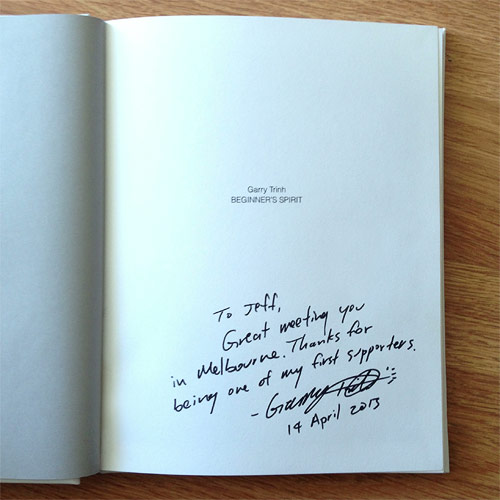 Garry Trinh
BEGINNER'S SPIRIT
To Jeff,
Great meeting you
in Melbourne. Thanks for
being one of my first supporters.
- Garry Trinh
14 April 2013